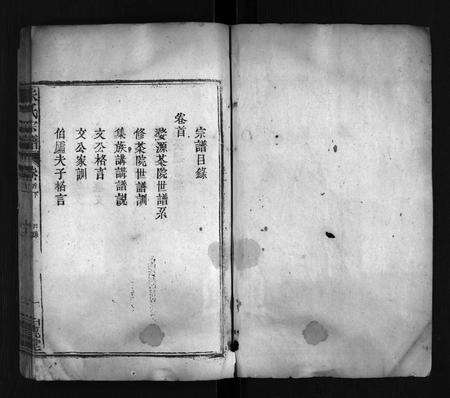 宗譜目錄
卷首
婺源茶院世譜系
修茶院世譜訓
集族講講譜說
文公格言
文公家訓
伯廬夫子格言
氏宗譜